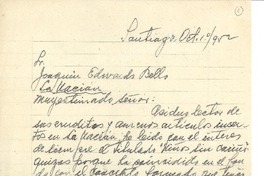 1
Santiago, Oct. 1º/952
Sr.
Joaquin Edwards Bello
La Nación
Muy estimado señor:
Asiduo lector de
sus eruditos y amenos artículos inser-
tos en La Nación, he leido con el interes
de siempre el titulado
porque ha coincidido en el fon-
do con el concepto formado que tenia